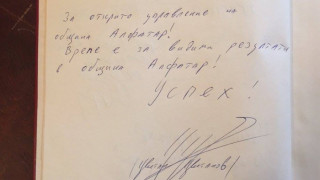 За открито управление на
община Алфатар!
Време е за видими резултати
в община Алфатар!
Успех!